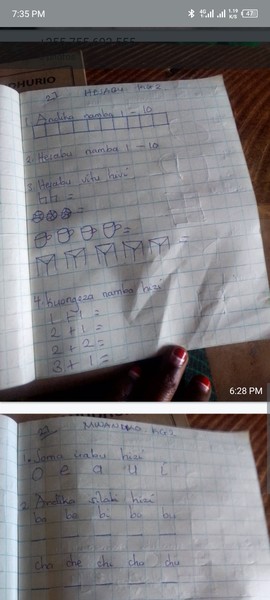 7:35 PM
1.19 K/S
43
+255 755 602 555
DHURIO
HESABU KG2
1. Andika namba 1 - 10
2. Hesabu namba 1 - 10
3. Hesabu vitu hivi
=
=
=
=
4. kuongeza namba hizi
1 + 1 =
2 + 1 =
2 + 2 =
3 + 1 =
6:28 PM
MWANDIKO KG2
1. Soma irabu hizi
o e a u i
2. Andika silabi hizi
ba be bi bo bu
cha che chi cho chu